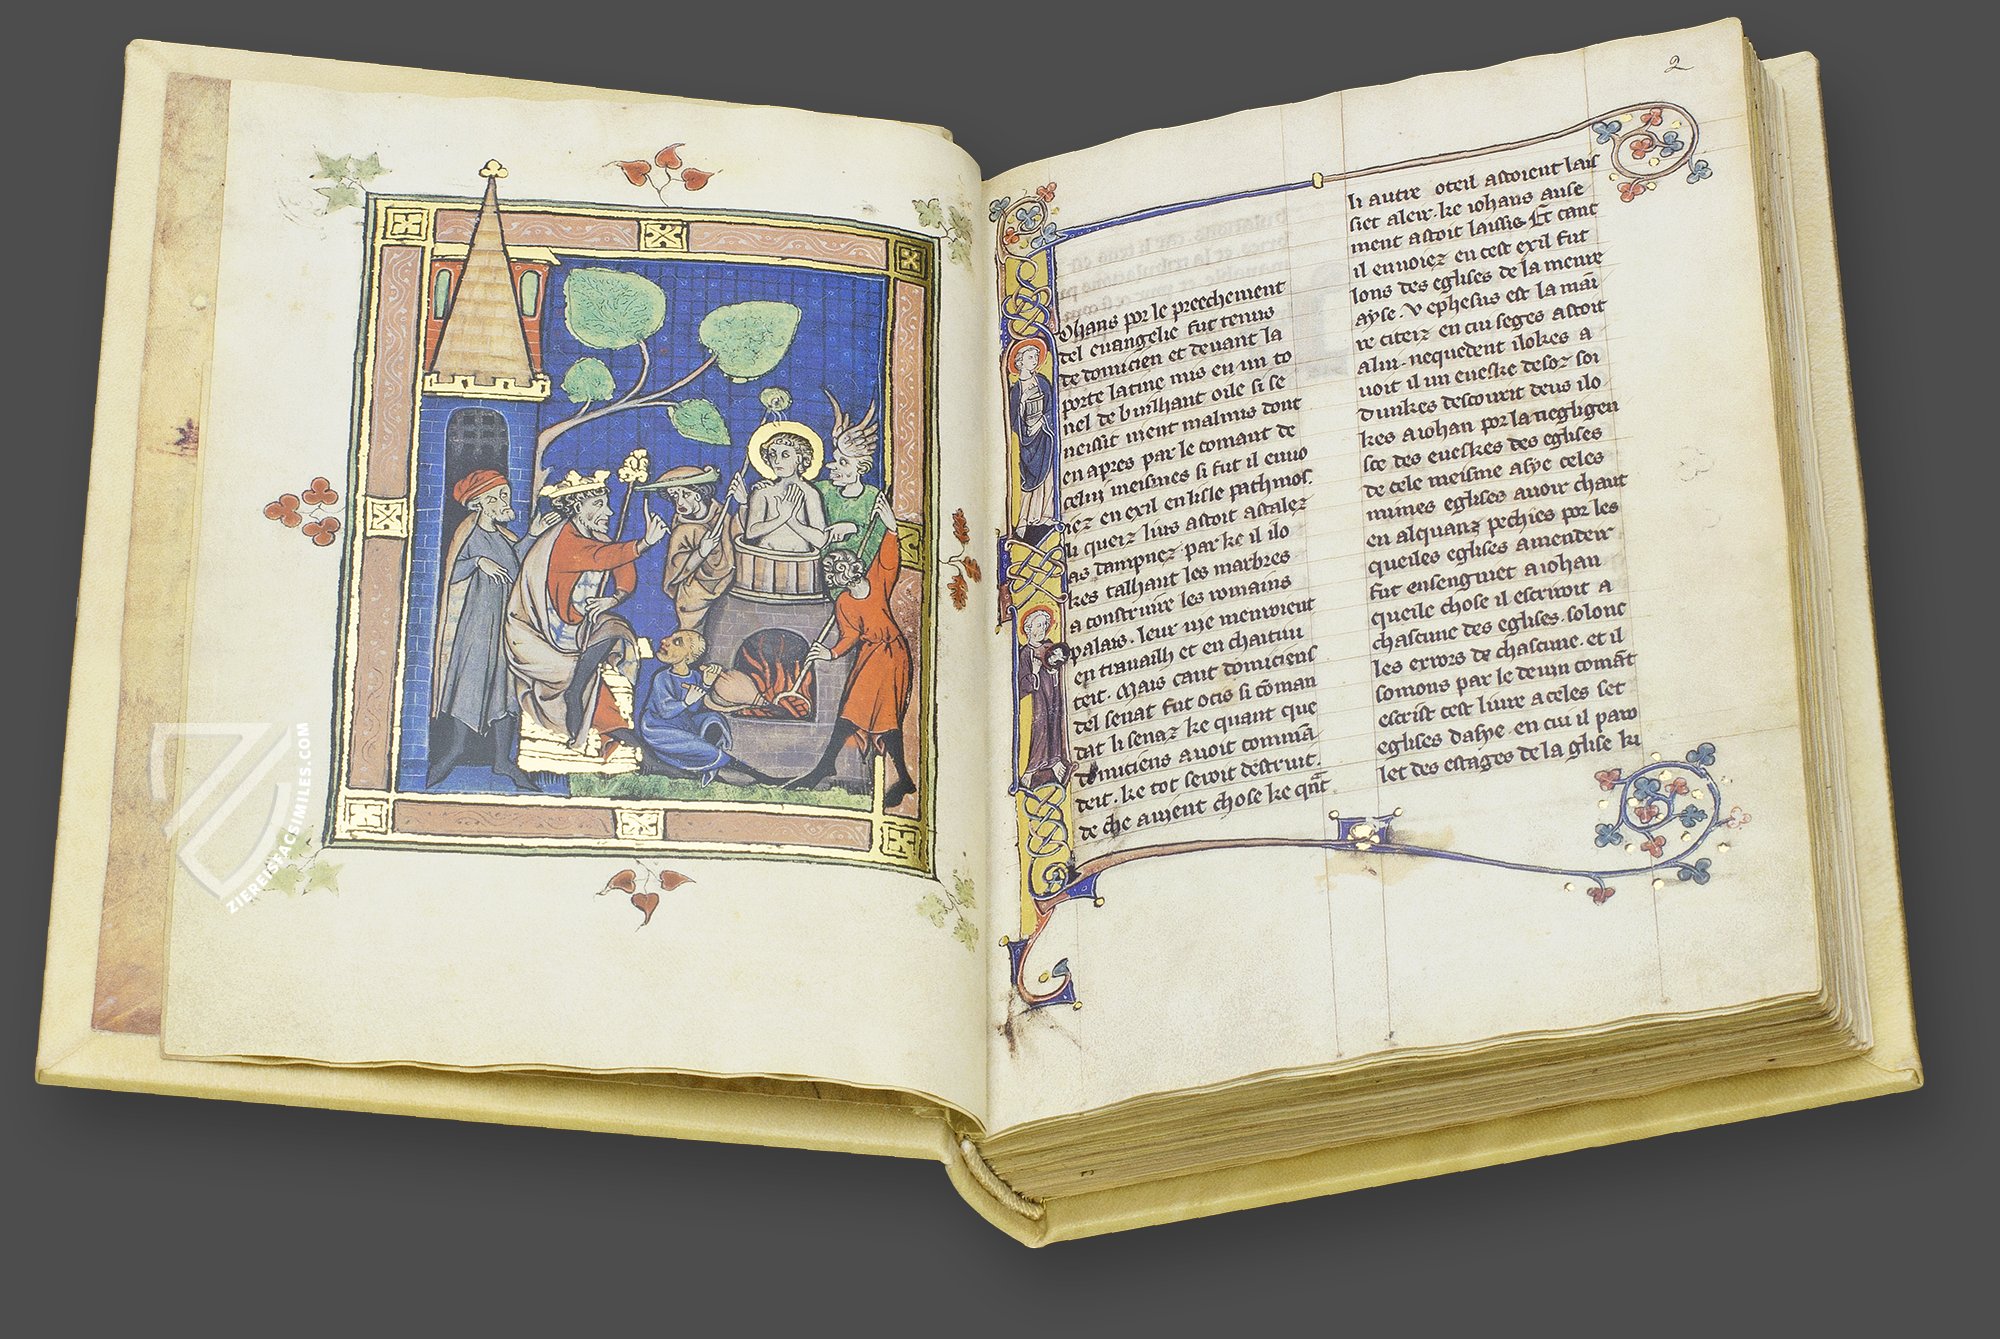 2
Ohans por le preechement
del euangelie fut tenus
de domicien et deuant la
porte latine mis en un to
nel de builhant oile si se
neisūt nient malmis dont
en apres par le comant de
celui meismes si fut il enuo
iez en exil en lisle pathmos.
li queiz lius astoit astalez
as dampnez par ke il ilo
kes talhant les marbres
a construire les romains
palais. leur uie menroient
en trauailh et en chaitiui
teit. Mais cant domiciens
del senat fut ocis si cōman
dat li senaz ke quant que
domiciens auoit commā
deit. ke tot seroit destruit.
de che auient chose ke qnt
li autre oteil astoient lais
siet aleir. ke iohans ause
ment astoit laissiet. Et cant
il enuoiez en cest exil fut
lons des eglises de la menre
ayse. V ephesus est la mai
re citeiz en cui seges astoit
aliu. nequedent ilokes a
uoit il un eueske desoz soi
dunkes descourit deus ilo
kes a iohan por la negligen
sce des eueskes des eglises
de cele meisme asye celes
mimes eglises auoir chaut
en alquanz pechies por les
queiles eglises amendeir
fut ensengniet a iohan
queile chose il escriroit a
chascune des eglises. solonc
les errors de chascune. et il
somons par le deuin comāt
escrist cest liure a celes set
eglises dasye. en cui il paro
let des estages de la glise ki
ZIEREISFACSIMILES.COM